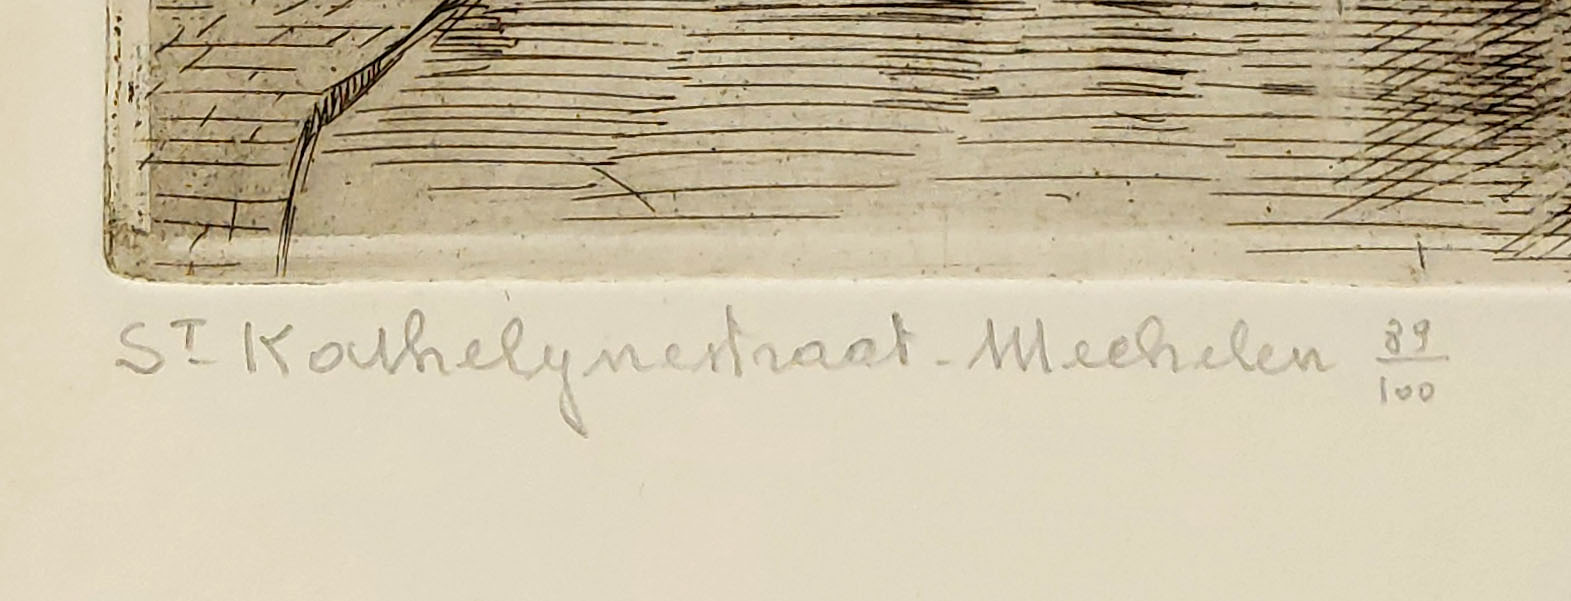 ST Kathelynestraat - Mechelen 89/100